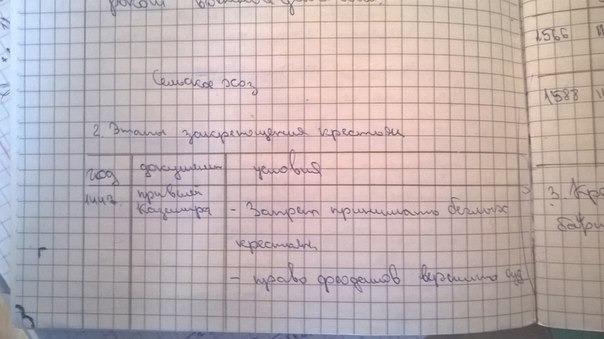 Сельское хоз
2. Этапы закрепощения крестьян
год документ условия
привилей
Казимира - Запрет принимать беглых
крестьян
- право феодалов вершить суд
1566
1588
3. Кре
барщ